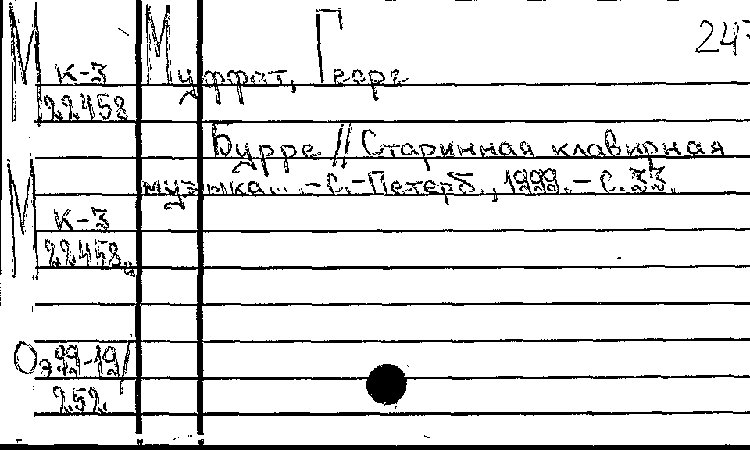 247
М К-3 Муффат, Георг
22458
Бурре // Старинная клавирная
музыка... - С.-Петерб., 1999. - С. 33.
М К-3
22458
Оэ 99-19/
252.